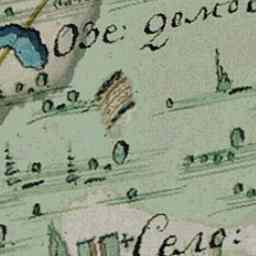 Озе: домов
Село: